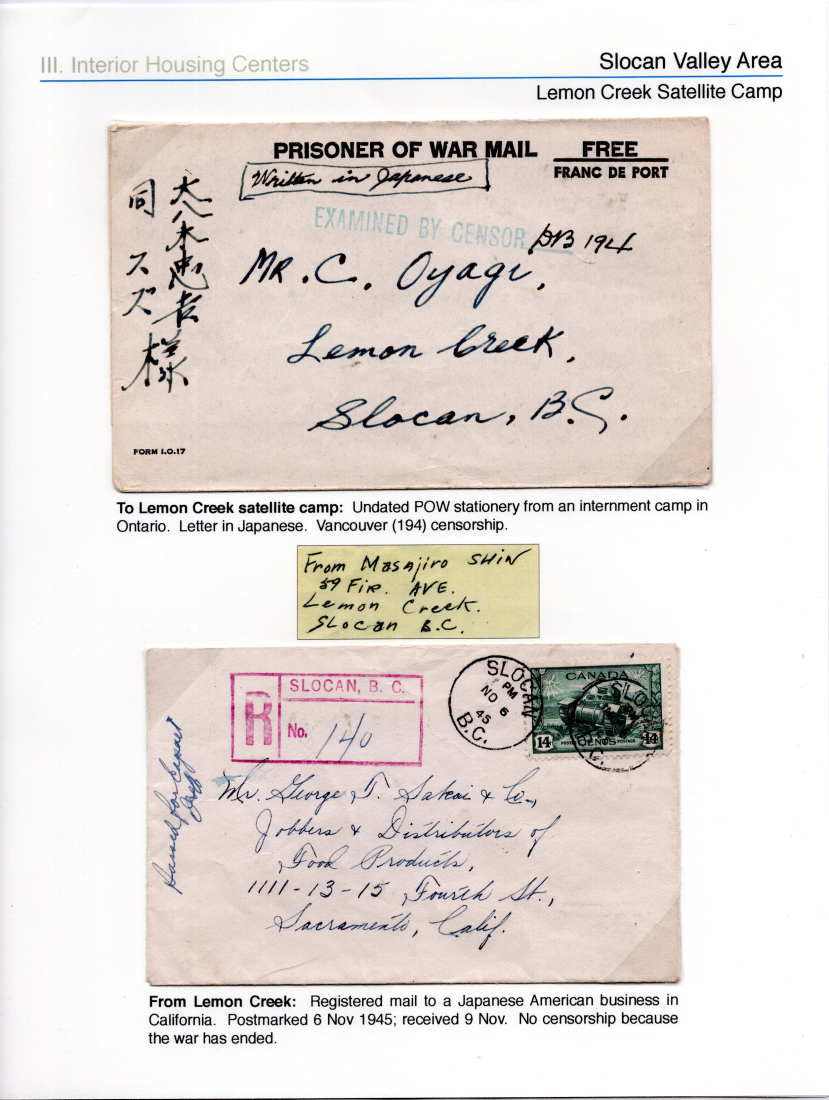 III. Interior Housing Centers
Slocan Valley Area
Lemon Creek Satellite Camp
PRISONER OF WAR MAIL
FREE
FRANC DE PORT
Written in Japanese
EXAMINED BY CENSOR
DB 194
大八木忠吉様
同 スズ 様
MR. C. Oyagi,
Lemon Creek,
Slocan, B.C.
FORM I.O.17
To Lemon Creek satellite camp: Undated POW stationery from an internment camp in
Ontario. Letter in Japanese. Vancouver (194) censorship.
From Masajiro SHIN
59 FIR. AVE.
Lemon Creek.
SLocan B.C.
R
SLOCAN, B. C.
No. 140
SLOCAN
PM
NO 6
45
B.C.
CANADA
14 POSTES CENTS POSTAGE 14
SLO
Mr. George T. Sakai & Co.,
Jobbers & Distributors of
Food Products,
1111-13-15 Fourth St.,
Sacramento, Calif.
From Lemon Creek: Registered mail to a Japanese American business in
California. Postmarked 6 Nov 1945; received 9 Nov. No censorship because
the war has ended.